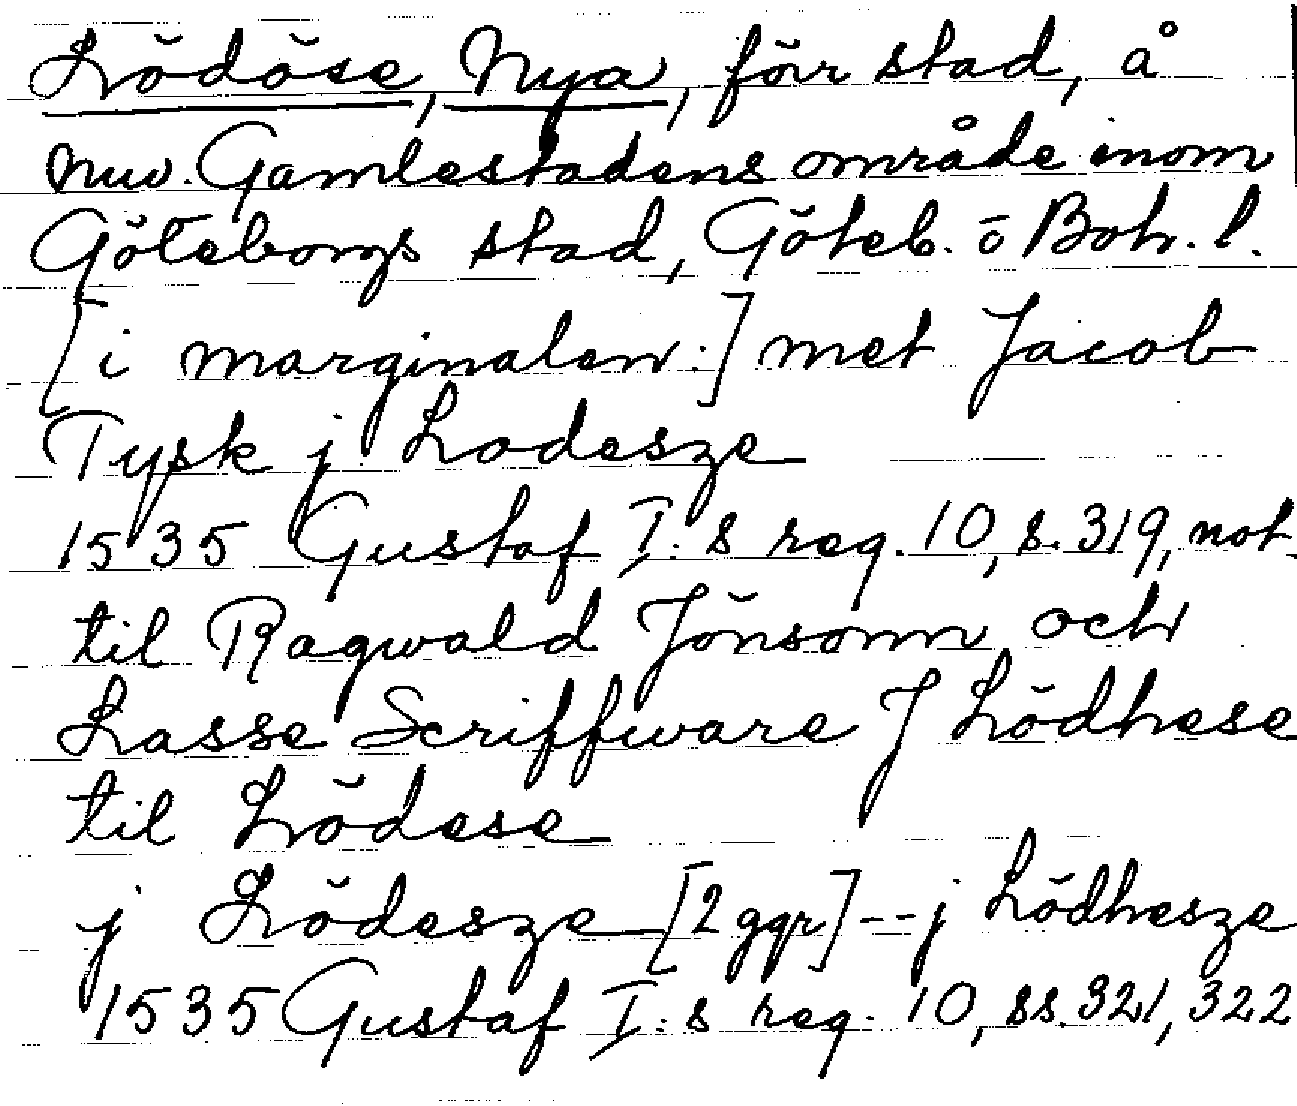 Lödöse, Nya, förr stad, å
nuv. Gamlestadens område inom
Göteborgs stad, Göteb. o Boh. l.
[i marginalen:] met Jacob
Tysk j Lodesze
1535 Gustaf I:s reg. 10, s. 319, not.
til Ragwald Jönsonn och
Lasse Scriffware J Lödhese
til Lödese
j Lödesze [2 ggr] -- j Lödhesze
1535 Gustaf I:s reg. 10, ss. 321, 322